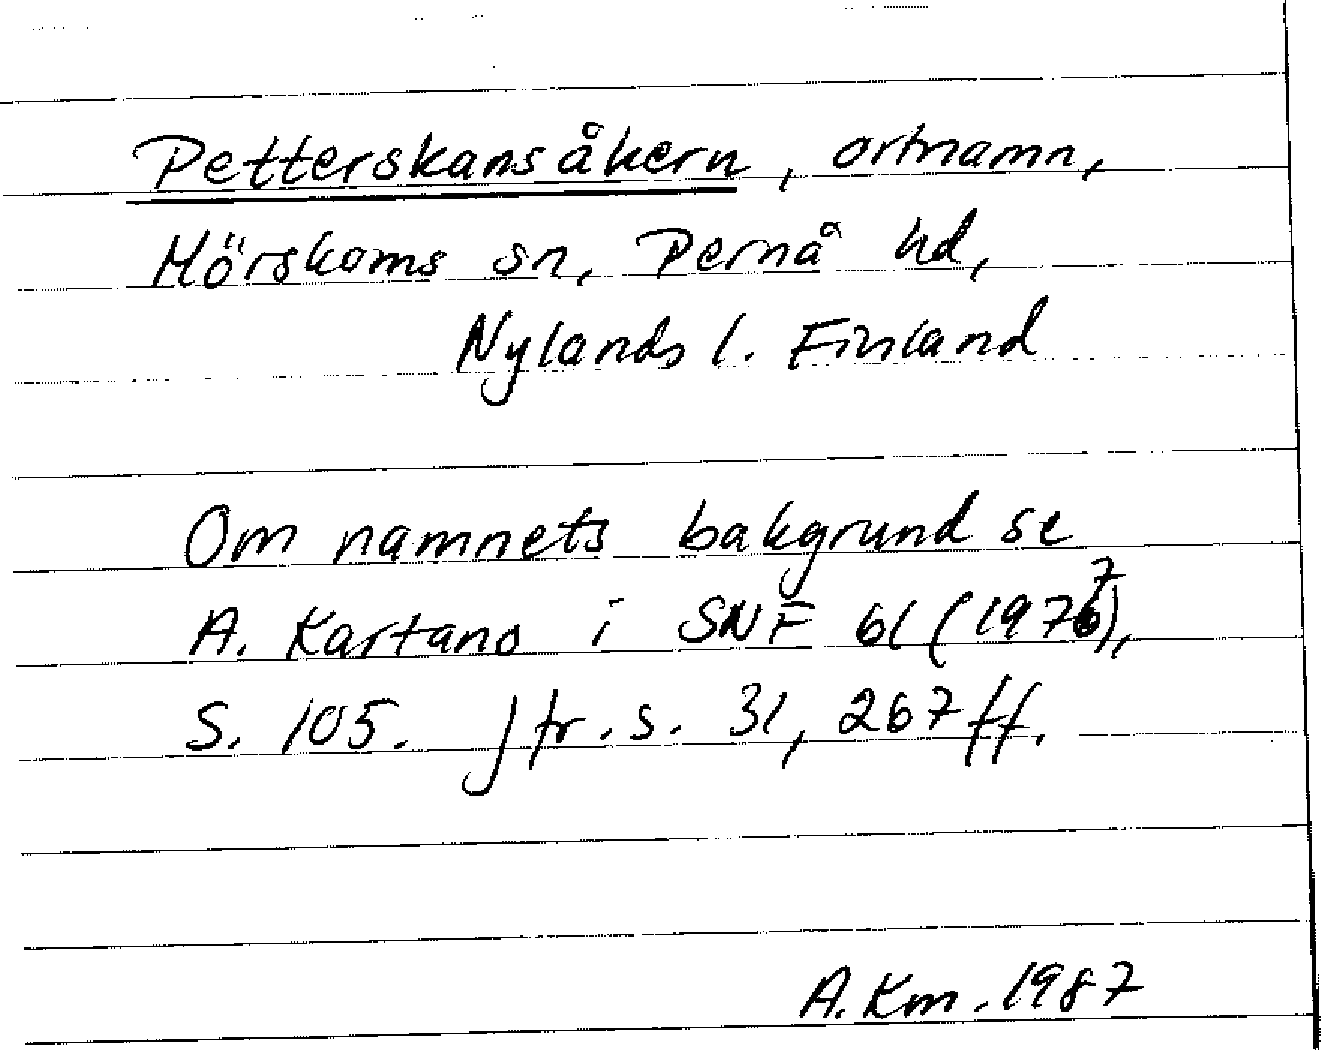 Petterskansåkern, ortnamn,
Mörskoms sn, Pernå hd,
Nylands l. Finland
Om namnets bakgrund se
A. Kartano i SNF 61 (1977),
S. 105. Jfr. s. 31, 267 ff.
A. Km. 1987